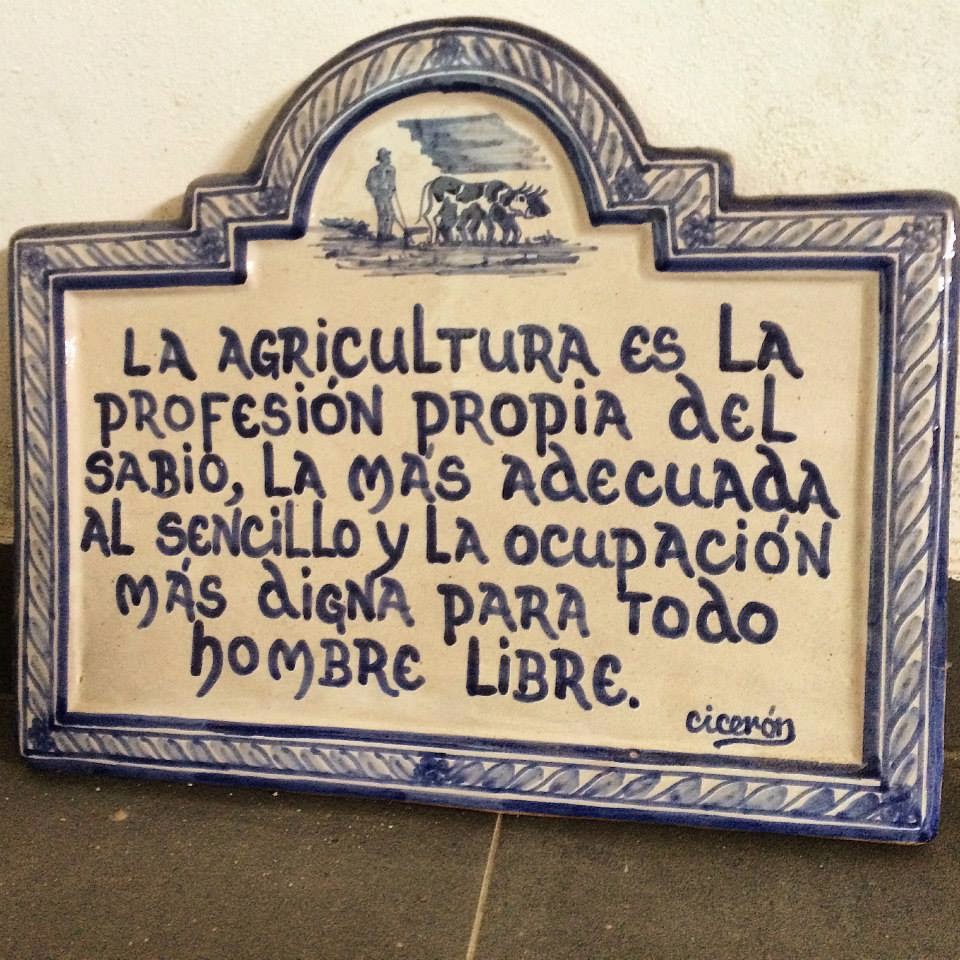 LA AGRICULTURA ES LA
PROFESIÓN PROPIA DEL
SABIO, LA MÁS ADECUADA
AL SENCILLO Y LA OCUPACIÓN
MÁS DIGNA PARA TODO
HOMBRE LIBRE.
cicerón